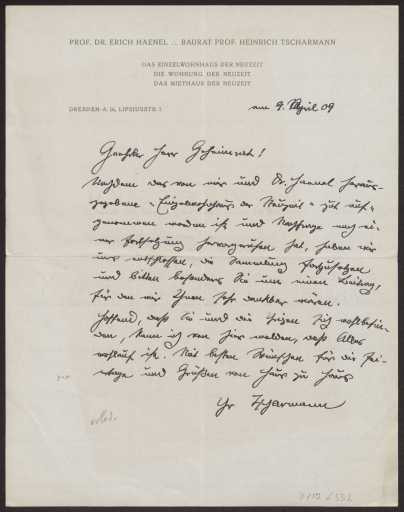 PROF. DR. ERICH HAENEL ... BAURAT PROF. HEINRICH TSCHARMANN
DAS EINZELWOHNHAUS DER NEUZEIT
DIE WOHNUNG DER NEUZEIT
DAS MIETHAUS DER NEUZEIT
DRESDEN-A. 16, LIPSIUSSTR. 1
am 9. April 09
Geehrter Herr Geheimrat!
Nachdem das von mir und Dr. Haenel heraus-
gegebene "Einzelwohnhaus der Neuzeit" gut auf-
genommen worden ist und Nachfrage nach ei-
ner Fortsetzung hervorgerufen hat, haben wir
uns entschlossen, die Sammlung fortzusetzen
und bitten besonders Sie um einen Beitrag,
für den wir Ihnen sehr dankbar wären.
Hoffend, daß Sie und die Ihrigen sich wohlbefin-
den, kann ich von hier melden, daß Alles
wohlauf ist. Mit besten Wünschen für die Fei-
ertage und Grüßen von Haus zu Haus
Ihr Tscharmann